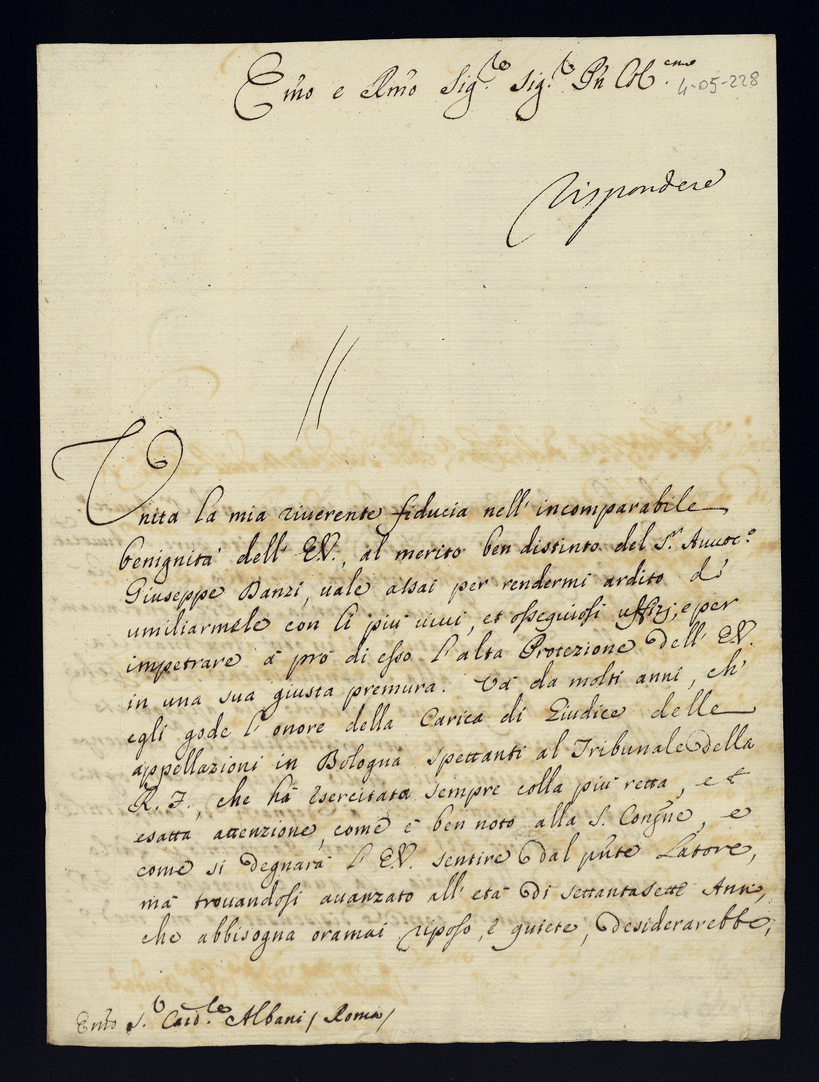 Emo e Rmo Sig.re Sig.r Pn Col.mo
4-05-228
Rispondere
Unita la mia riverente fiducia nell' incomparabile
benignita' dell' E.V., al merito ben distinto del S.r Avvoc.o
Giuseppe Danzi, vale assai per rendermi ardito di
umiliarmele con li più vivi, et ossequiosi uffizj, e per
impetrare à prò di esso l'alta Protezione dell' E.V.
in una sua giusta premura. Và da molti anni, ch'
egli gode l'onore della Carica di Giudice delle
appellazioni in Bologna spettanti al Tribunale della
R. F., che hà esercitata sempre colla più retta, et
esatta attenzione, come è ben noto alla S. Congne, e
come si degnarà l'E.V. sentire dal pnte Latore,
mà trovandosi avanzato all' età di settantasette Anni,
che abbisogna oramai riposo, e quiete, desiderarebbe,
Emo S.r Card.le Albani / Roma /